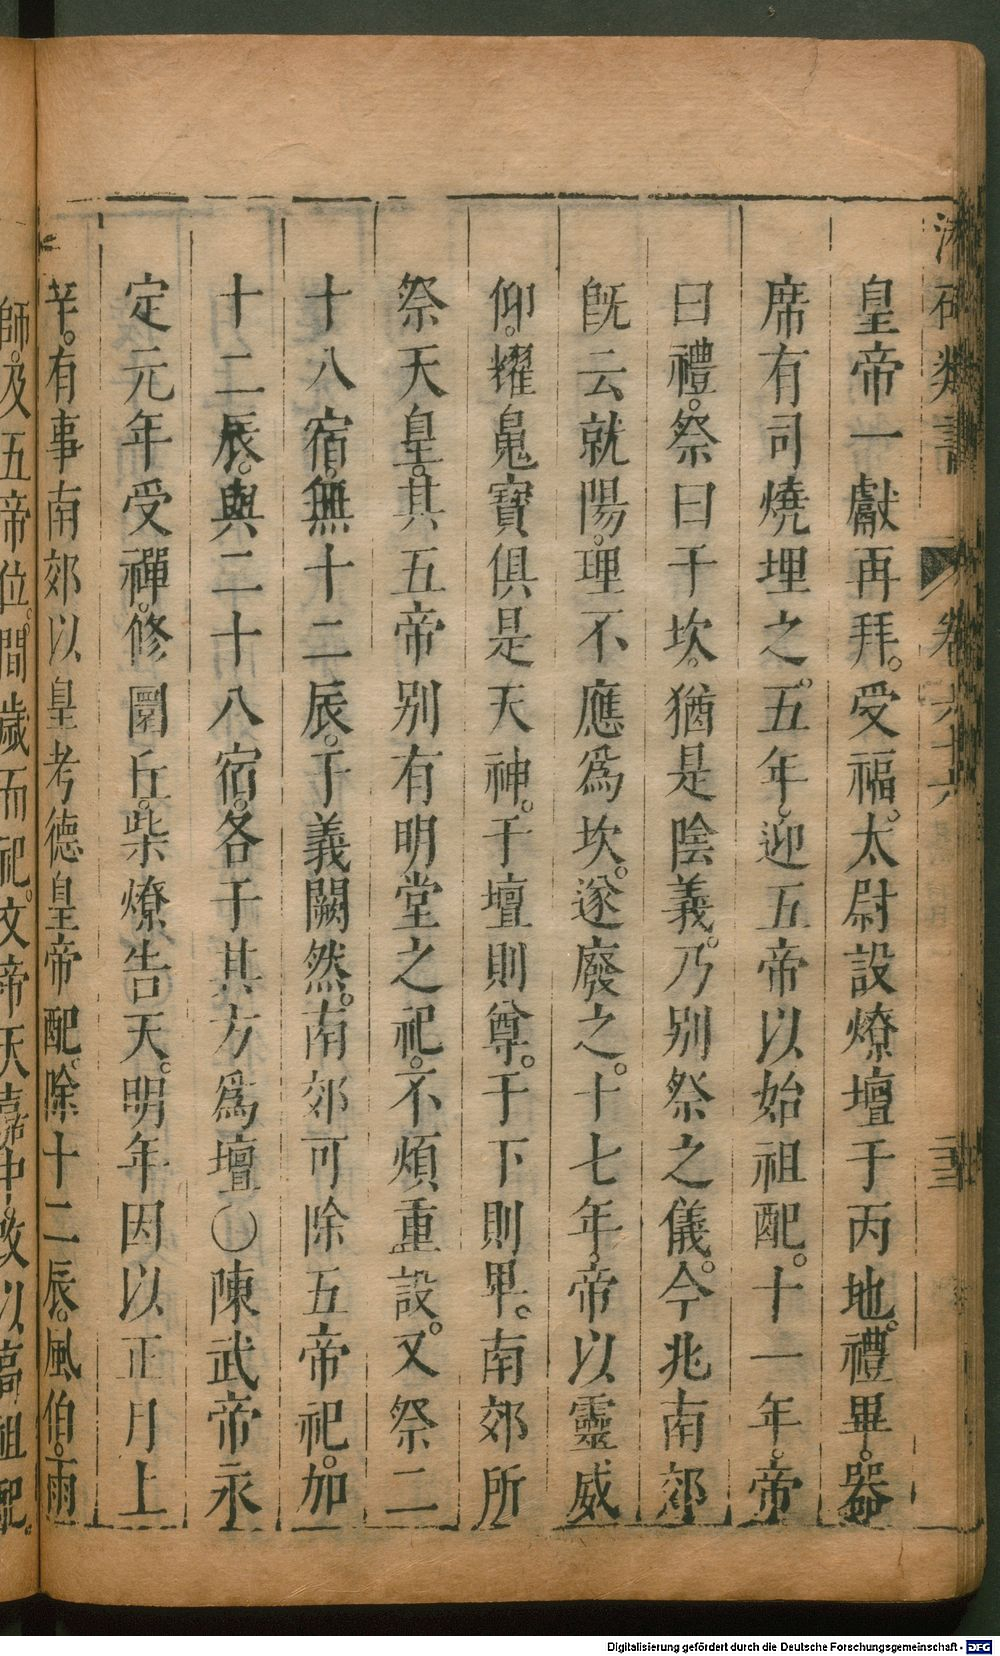 皇帝一獻再拜。受福。太尉設燎壇于丙地。禮畢。器
席有司燒埋之。五年。迎五帝以始祖配。十一年。帝
曰禮。祭曰于坎。猶是陰義。乃别祭之儀。今兆南郊
旣云就陽。理不應爲坎。遂廢之。十七年。帝以靈威
仰。耀䰟寶俱是天神。于壇則尊。于下則卑。南郊所
祭天皇。其五帝别有明堂之祀。不煩重設。又祭二
十八宿。無十二辰。于義闕然。南郊可除五帝祀。加
十二辰。與二十八宿。各于其方爲壇〇陳武帝永
定元年受禪。修圜丘。柴燎告天。明年因以正月上
辛。有事南郊以皇考德皇帝配。除十二辰。風伯。雨
師。及五帝位。間歲而祀。文帝天嘉中。改以高祖配。
類書
卷六十六
Digitalisierung gefördert durch die Deutsche Forschungsgemeinschaft - DFG